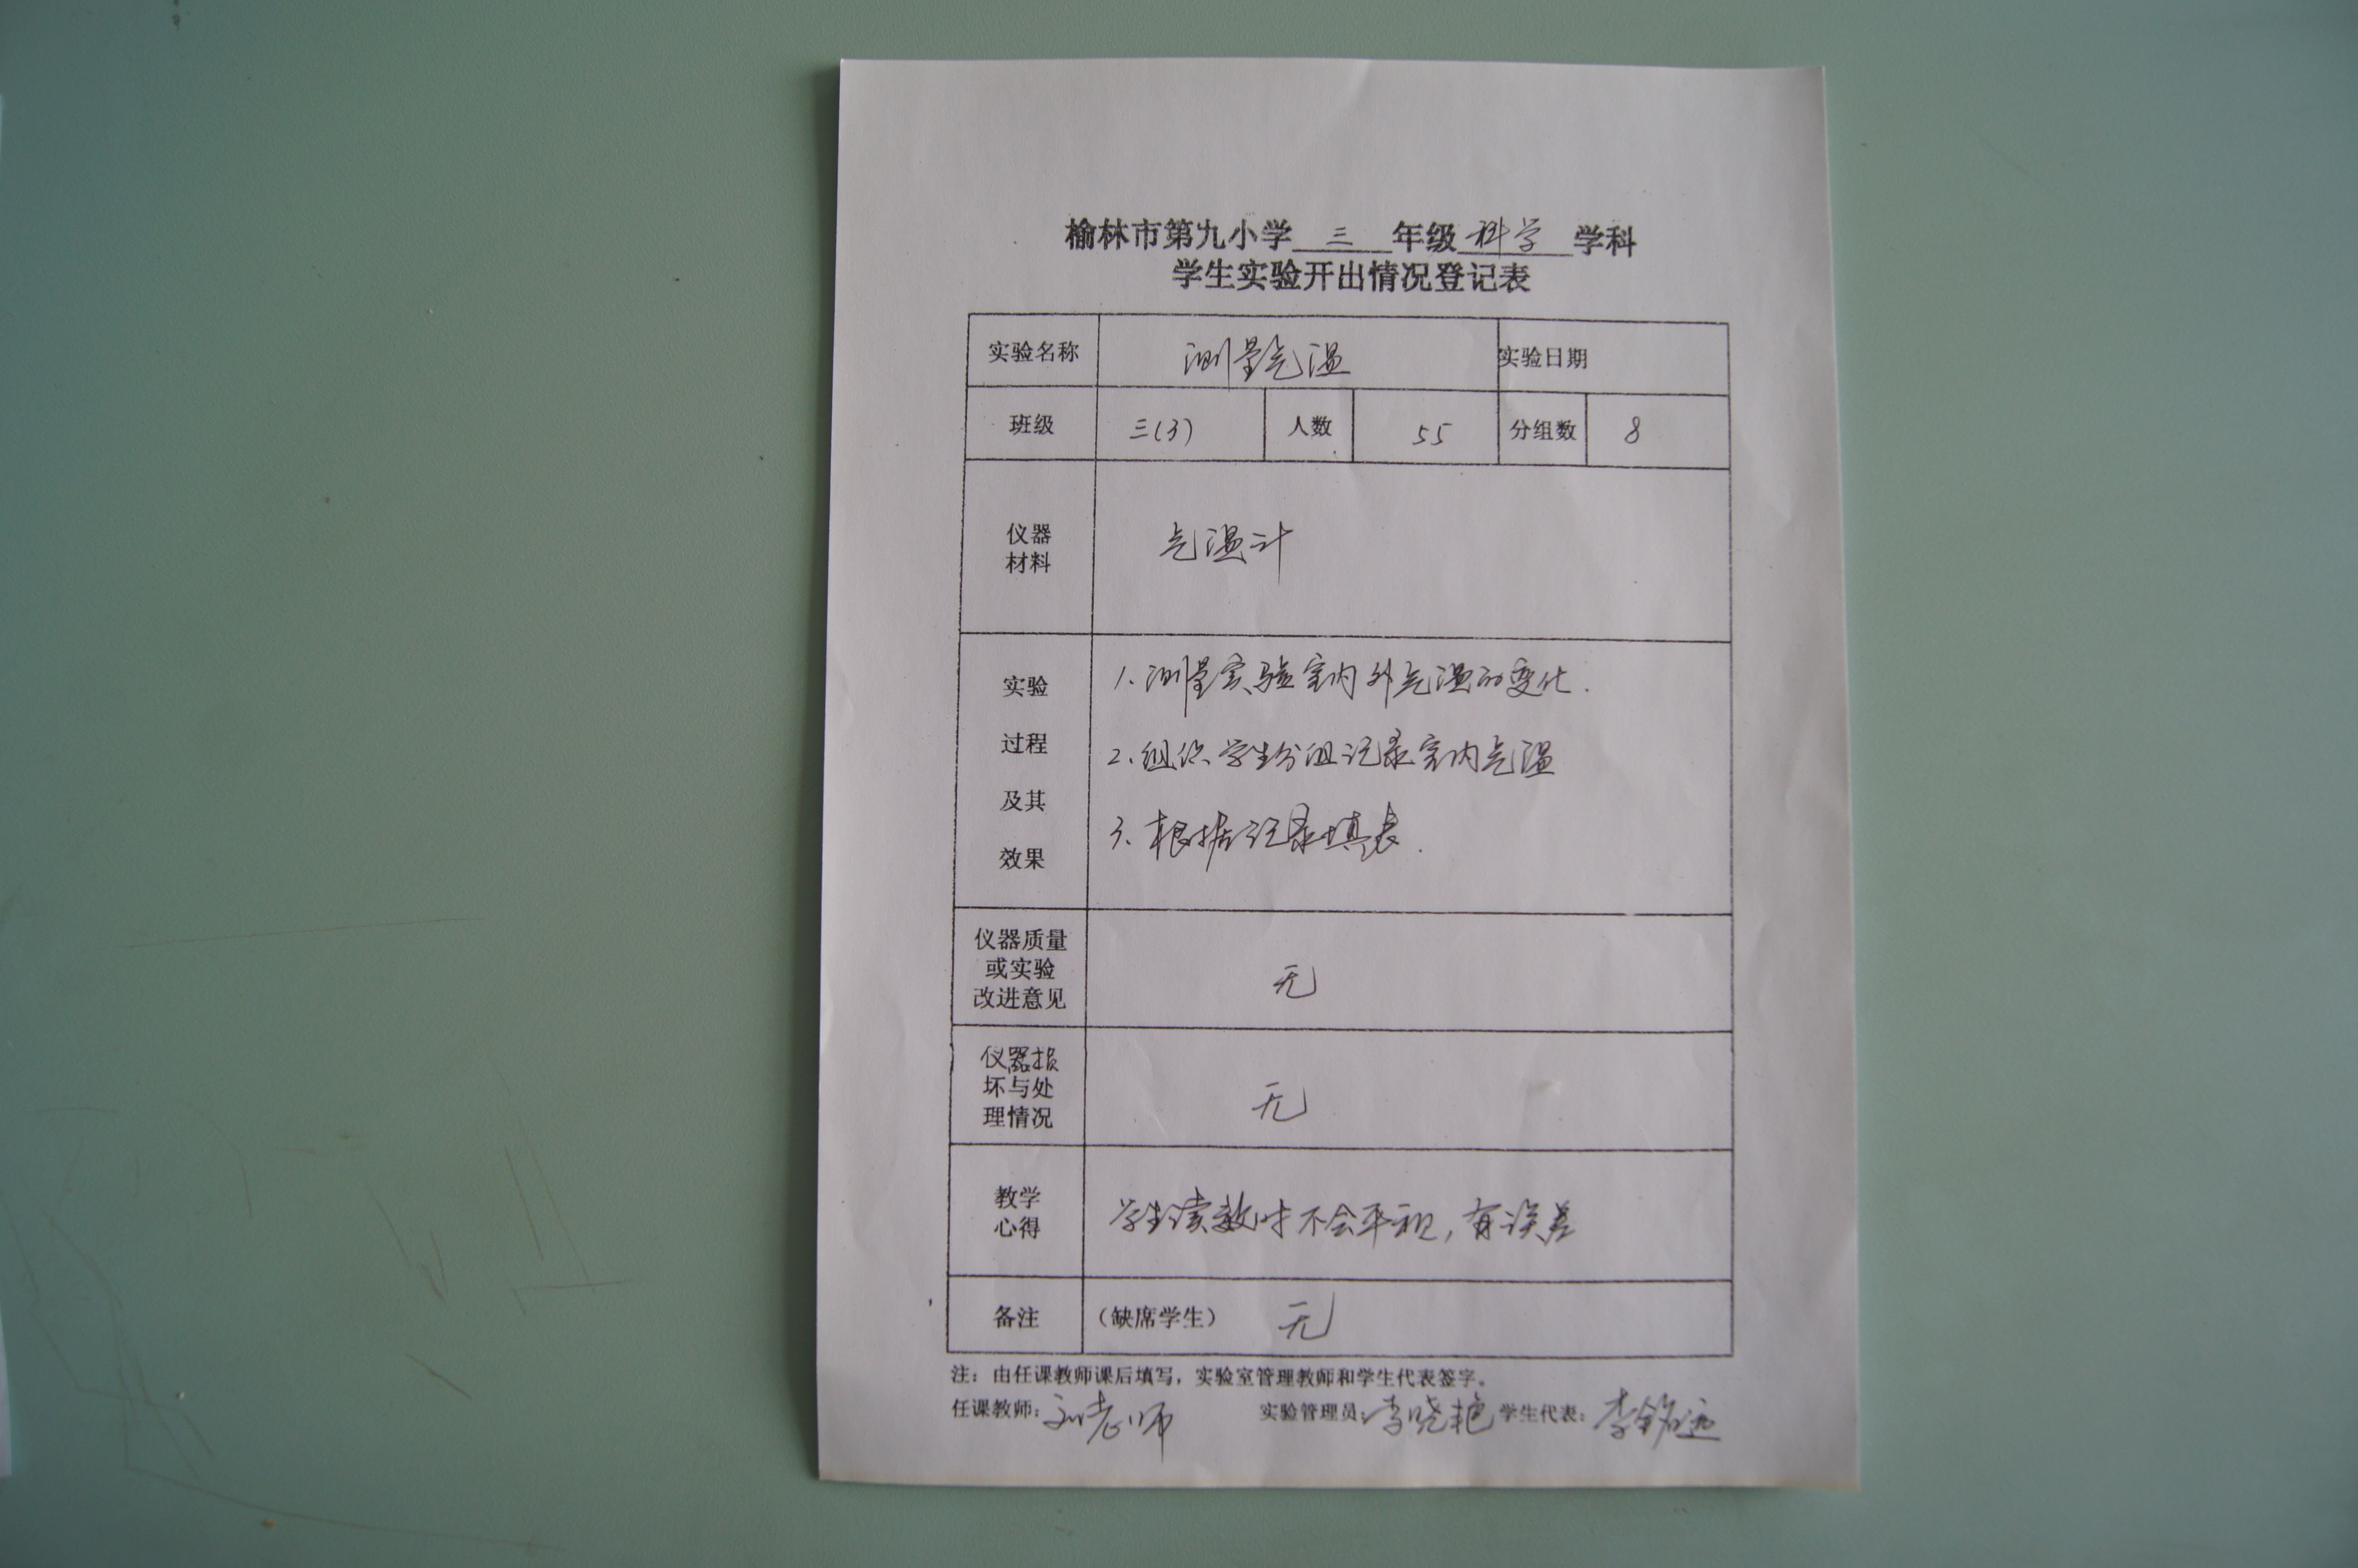 榆林市第九小学 三 年级 科学 学科
学生实验开出情况登记表
实验名称 测量气温 实验日期
班级 三(3) 人数 55 分组数 8
仪器
材料
气温计
实验
过程
及其
效果
1、测量实验室内外气温的变化.
2、组织学生分组记录室内气温
3、根据记录填表.
仪器质量
或实验
改进意见
无
仪器损
坏与处
理情况
无
教学
心得
学生读数时不会平视,有误差
备注 (缺席学生) 无
注:由任课教师课后填写,实验室管理教师和学生代表签字。
任课教师:刘老师 实验管理员:李晓艳 学生代表:李铭远